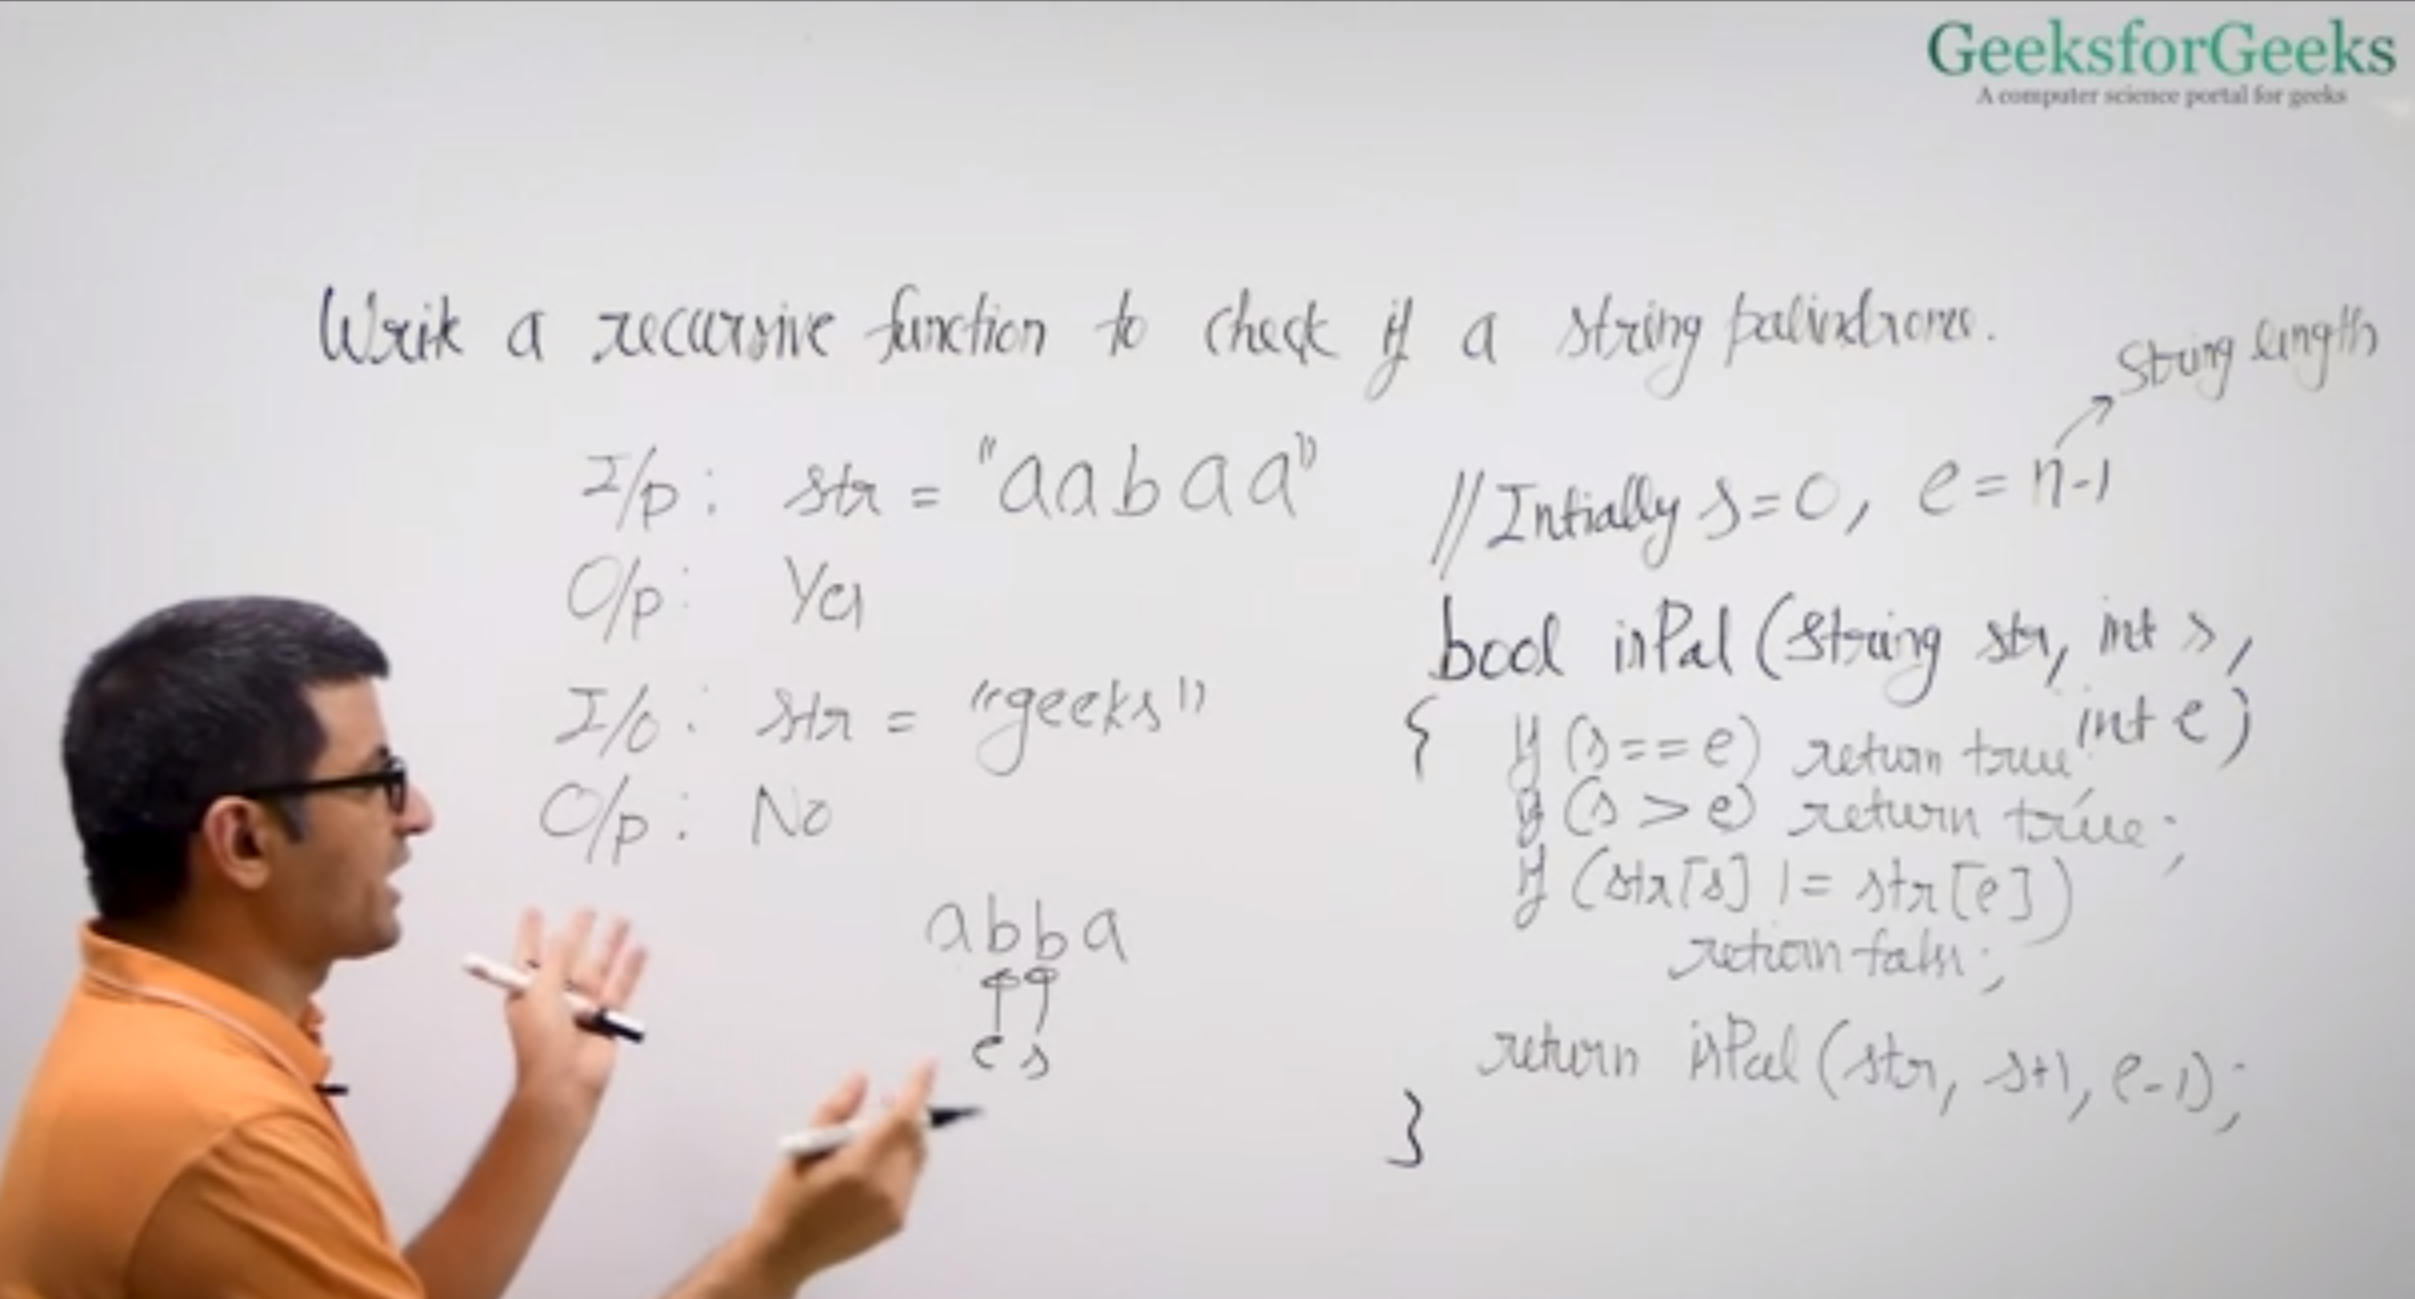 GeeksforGeeks
A computer science portal for geeks
Write a recursive function to check if a string palindrome.
I/p : str = "aabaa"
O/p : Yes
I/o : str = "geeks"
O/p : No
abba
e s
String length
//Intially s=0, e=n-1
bool isPal(string str, int s,
int e)
{ if (s==e) return true;
if (s > e) return true;
if (str[s] != str[e])
return false;
return isPal(str, s+1, e-1);
}